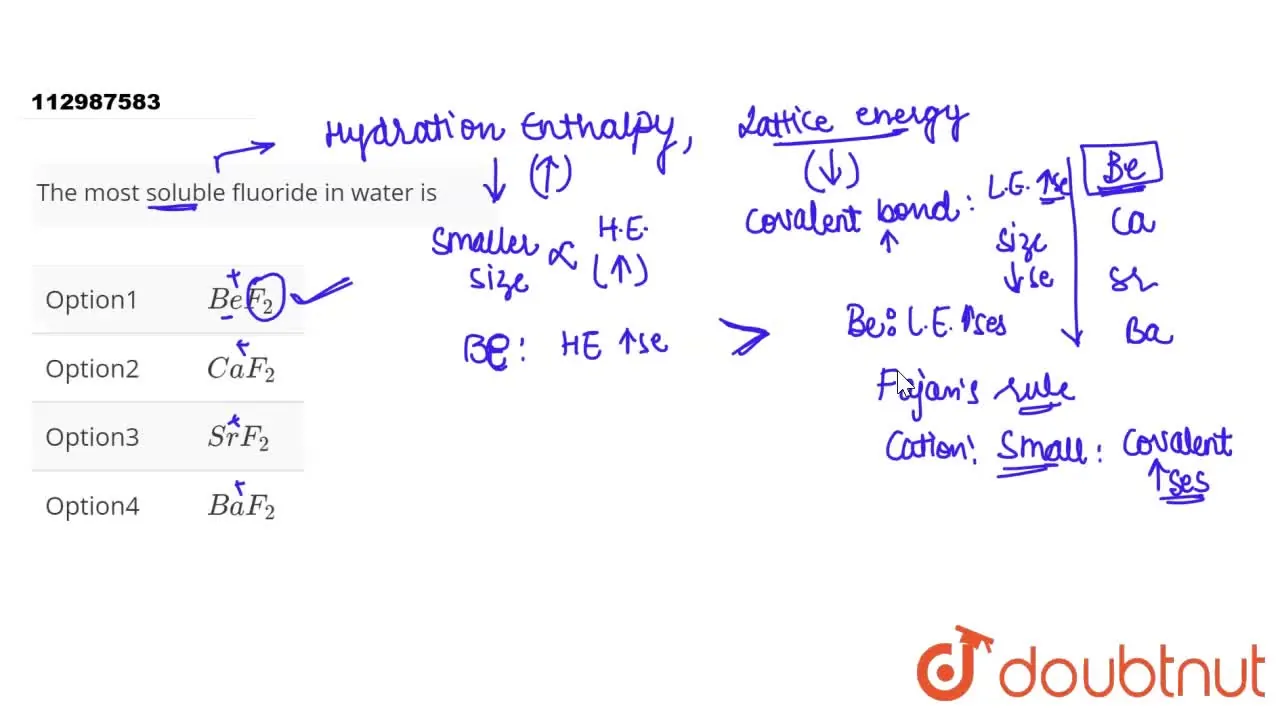 112987583
Hydration Enthalpy, Lattice energy
(↑) (↓)
The most soluble fluoride in water is
smaller size ∝ H.E. (↑)
Covalent bond : L.E. ↑se
↑
size ↓se
Be
Ca
Sr
Ba
Option1 BeF₂
+
Be : HE ↑se > Be : L.E. ↑ses
Option2 CaF₂
Fajan's rule
Option3 SrF₂
Cation : Small : Covalent
↑ses
Option4 BaF₂
doubtnut